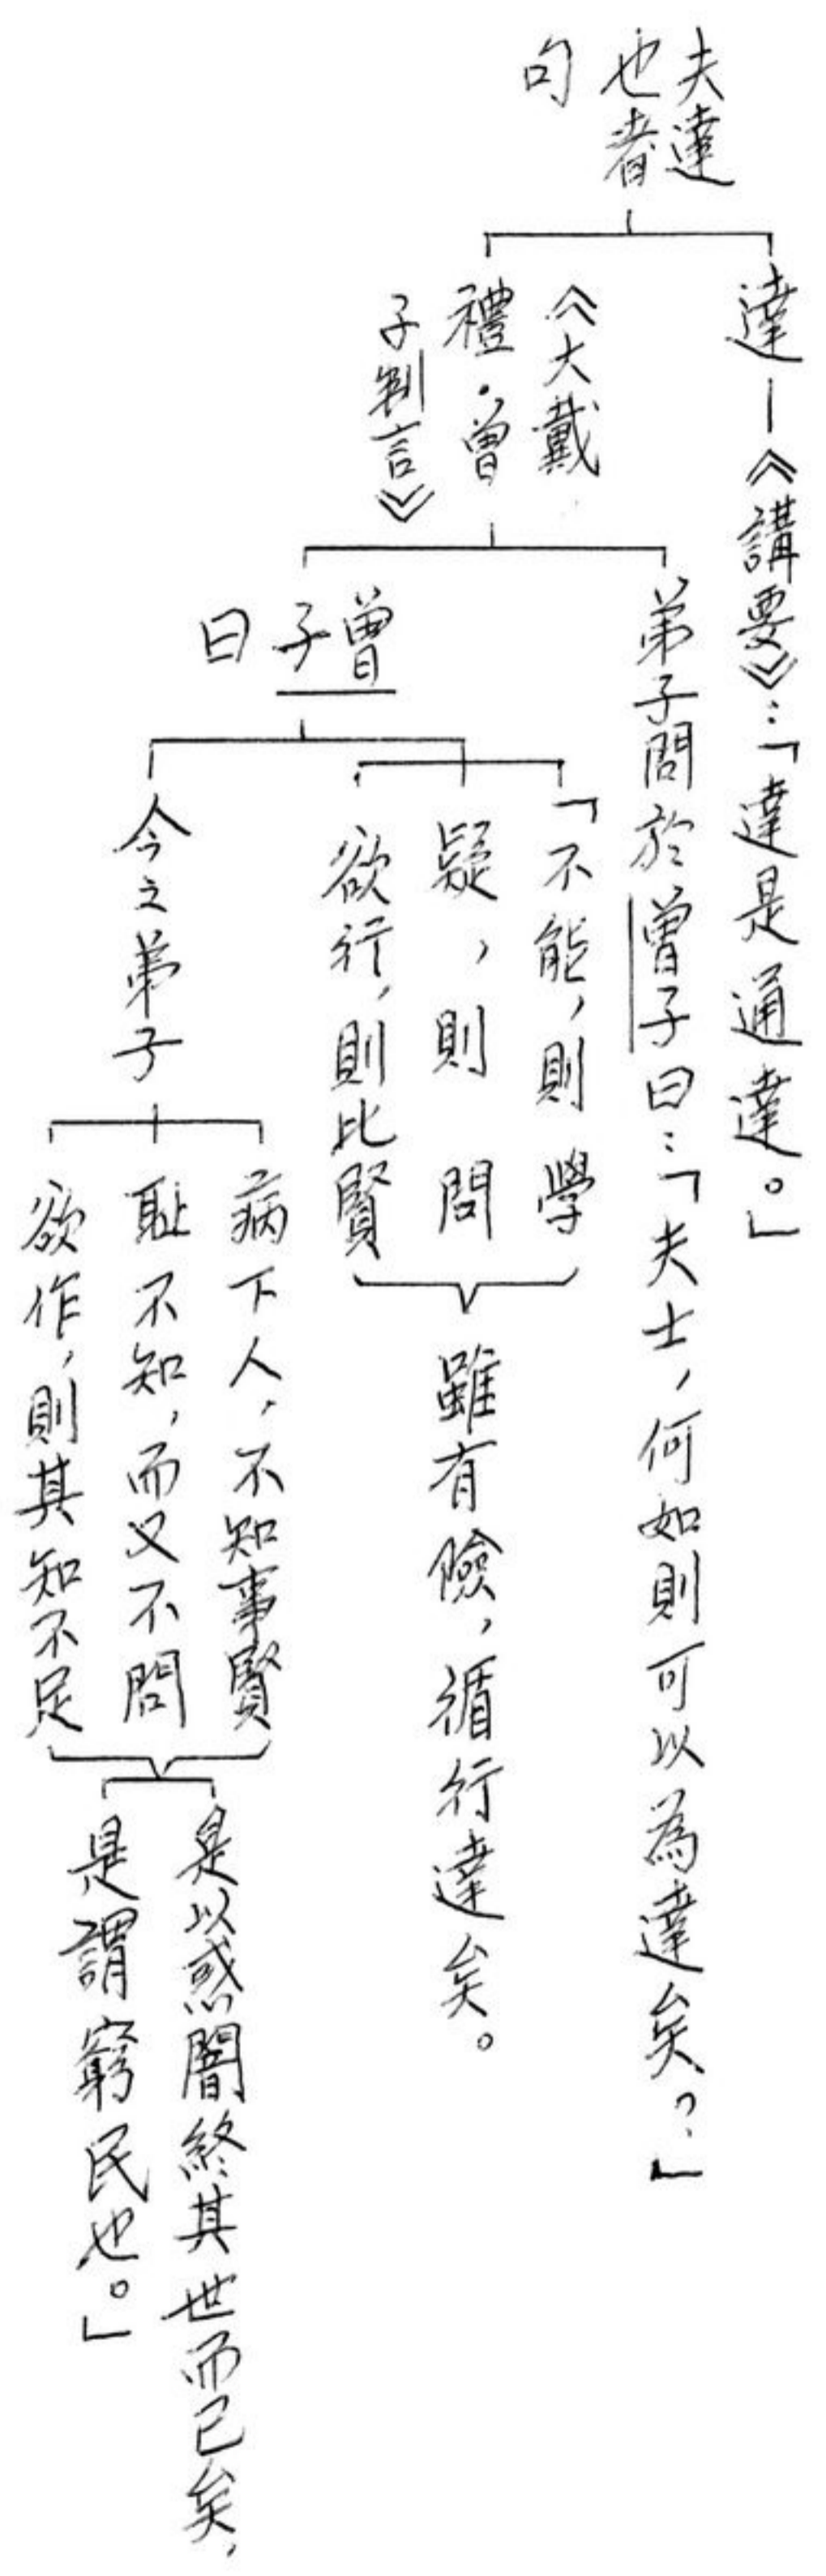 夫達
也者
句
達—《講要》:「達是通達。」
《大戴
禮.曾
子制言》
弟子問於曾子曰:「夫士,何如則可以為達矣?」
曾
子
曰
「不能,則學
疑,則問
欲行,則比賢
雖有險,循行達矣。
今之弟子
病下人,不知事賢
耻不知,而又不問
欲作,則其知不足
是以惑闇終其世而已矣,
是謂窮民也。」